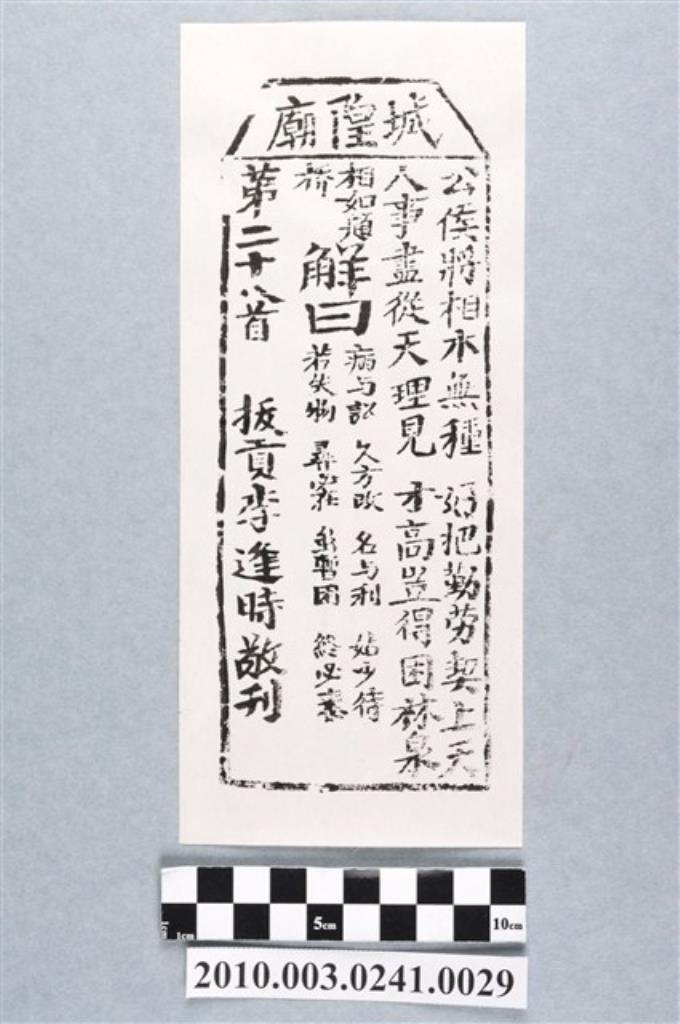 城隍廟
公侯將相本無種 好把勤勞契上天
人事盡從天理見 才高豈得困林泉
相如題
橋
解曰
病与訟 久方改 名与利 姑少待
若失物 暫困 終必泰
第二十八首 拔貢李逢時敬刊
5cm
10cm
1cm
2010.003.0241.0029